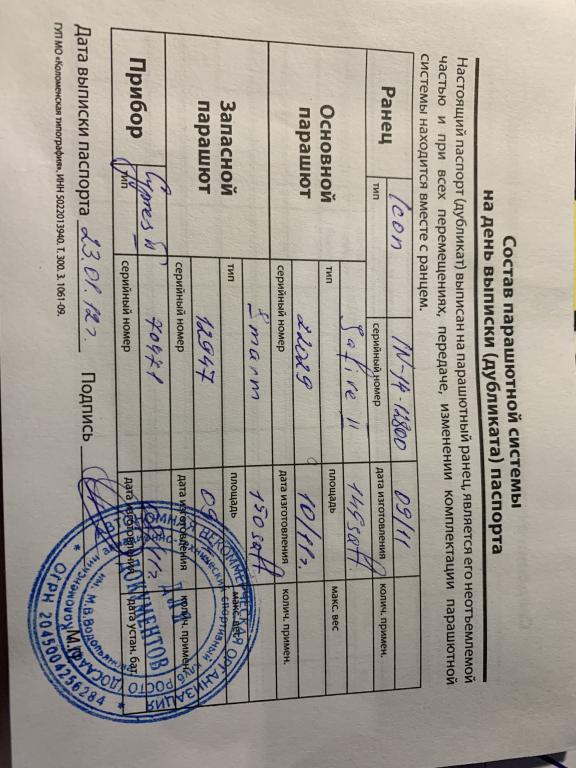 Состав парашютной системы
на день выписки (дубликата) паспорта
Настоящий паспорт (дубликат) выписан на парашютный ранец, является его неотъемлемой
частью и при всех перемещениях, передаче, изменении комплектации парашютной
системы находится вместе с ранцем.
Ранец Icon IN-14-12800 09/11
тип серийный номер дата изготовления колич. примен.
Основной парашют Safire II 149 saft
тип площадь макс. вес
22029 10/11г.
серийный номер дата изготовления колич. примен.
Запасной парашют Smart 150 saft
тип площадь макс. вес
12947 09
серийный номер дата изготовления колич. примен.
Прибор Cypres II 70471 /11г.
тип серийный номер дата изготовления дата устан. бат.
Дата выписки паспорта 23.01.12г. Подпись М.П.
ГУП МО «Коломенская типография», ИНН 5022013940. Т. 300. З. 1061-09.
АВТОНОМНАЯ НЕКОММЕРЧЕСКАЯ ОРГАНИЗАЦИЯ
* ОГРН 2045004256284 *
ДЛЯ
ДОКУМЕНТОВ